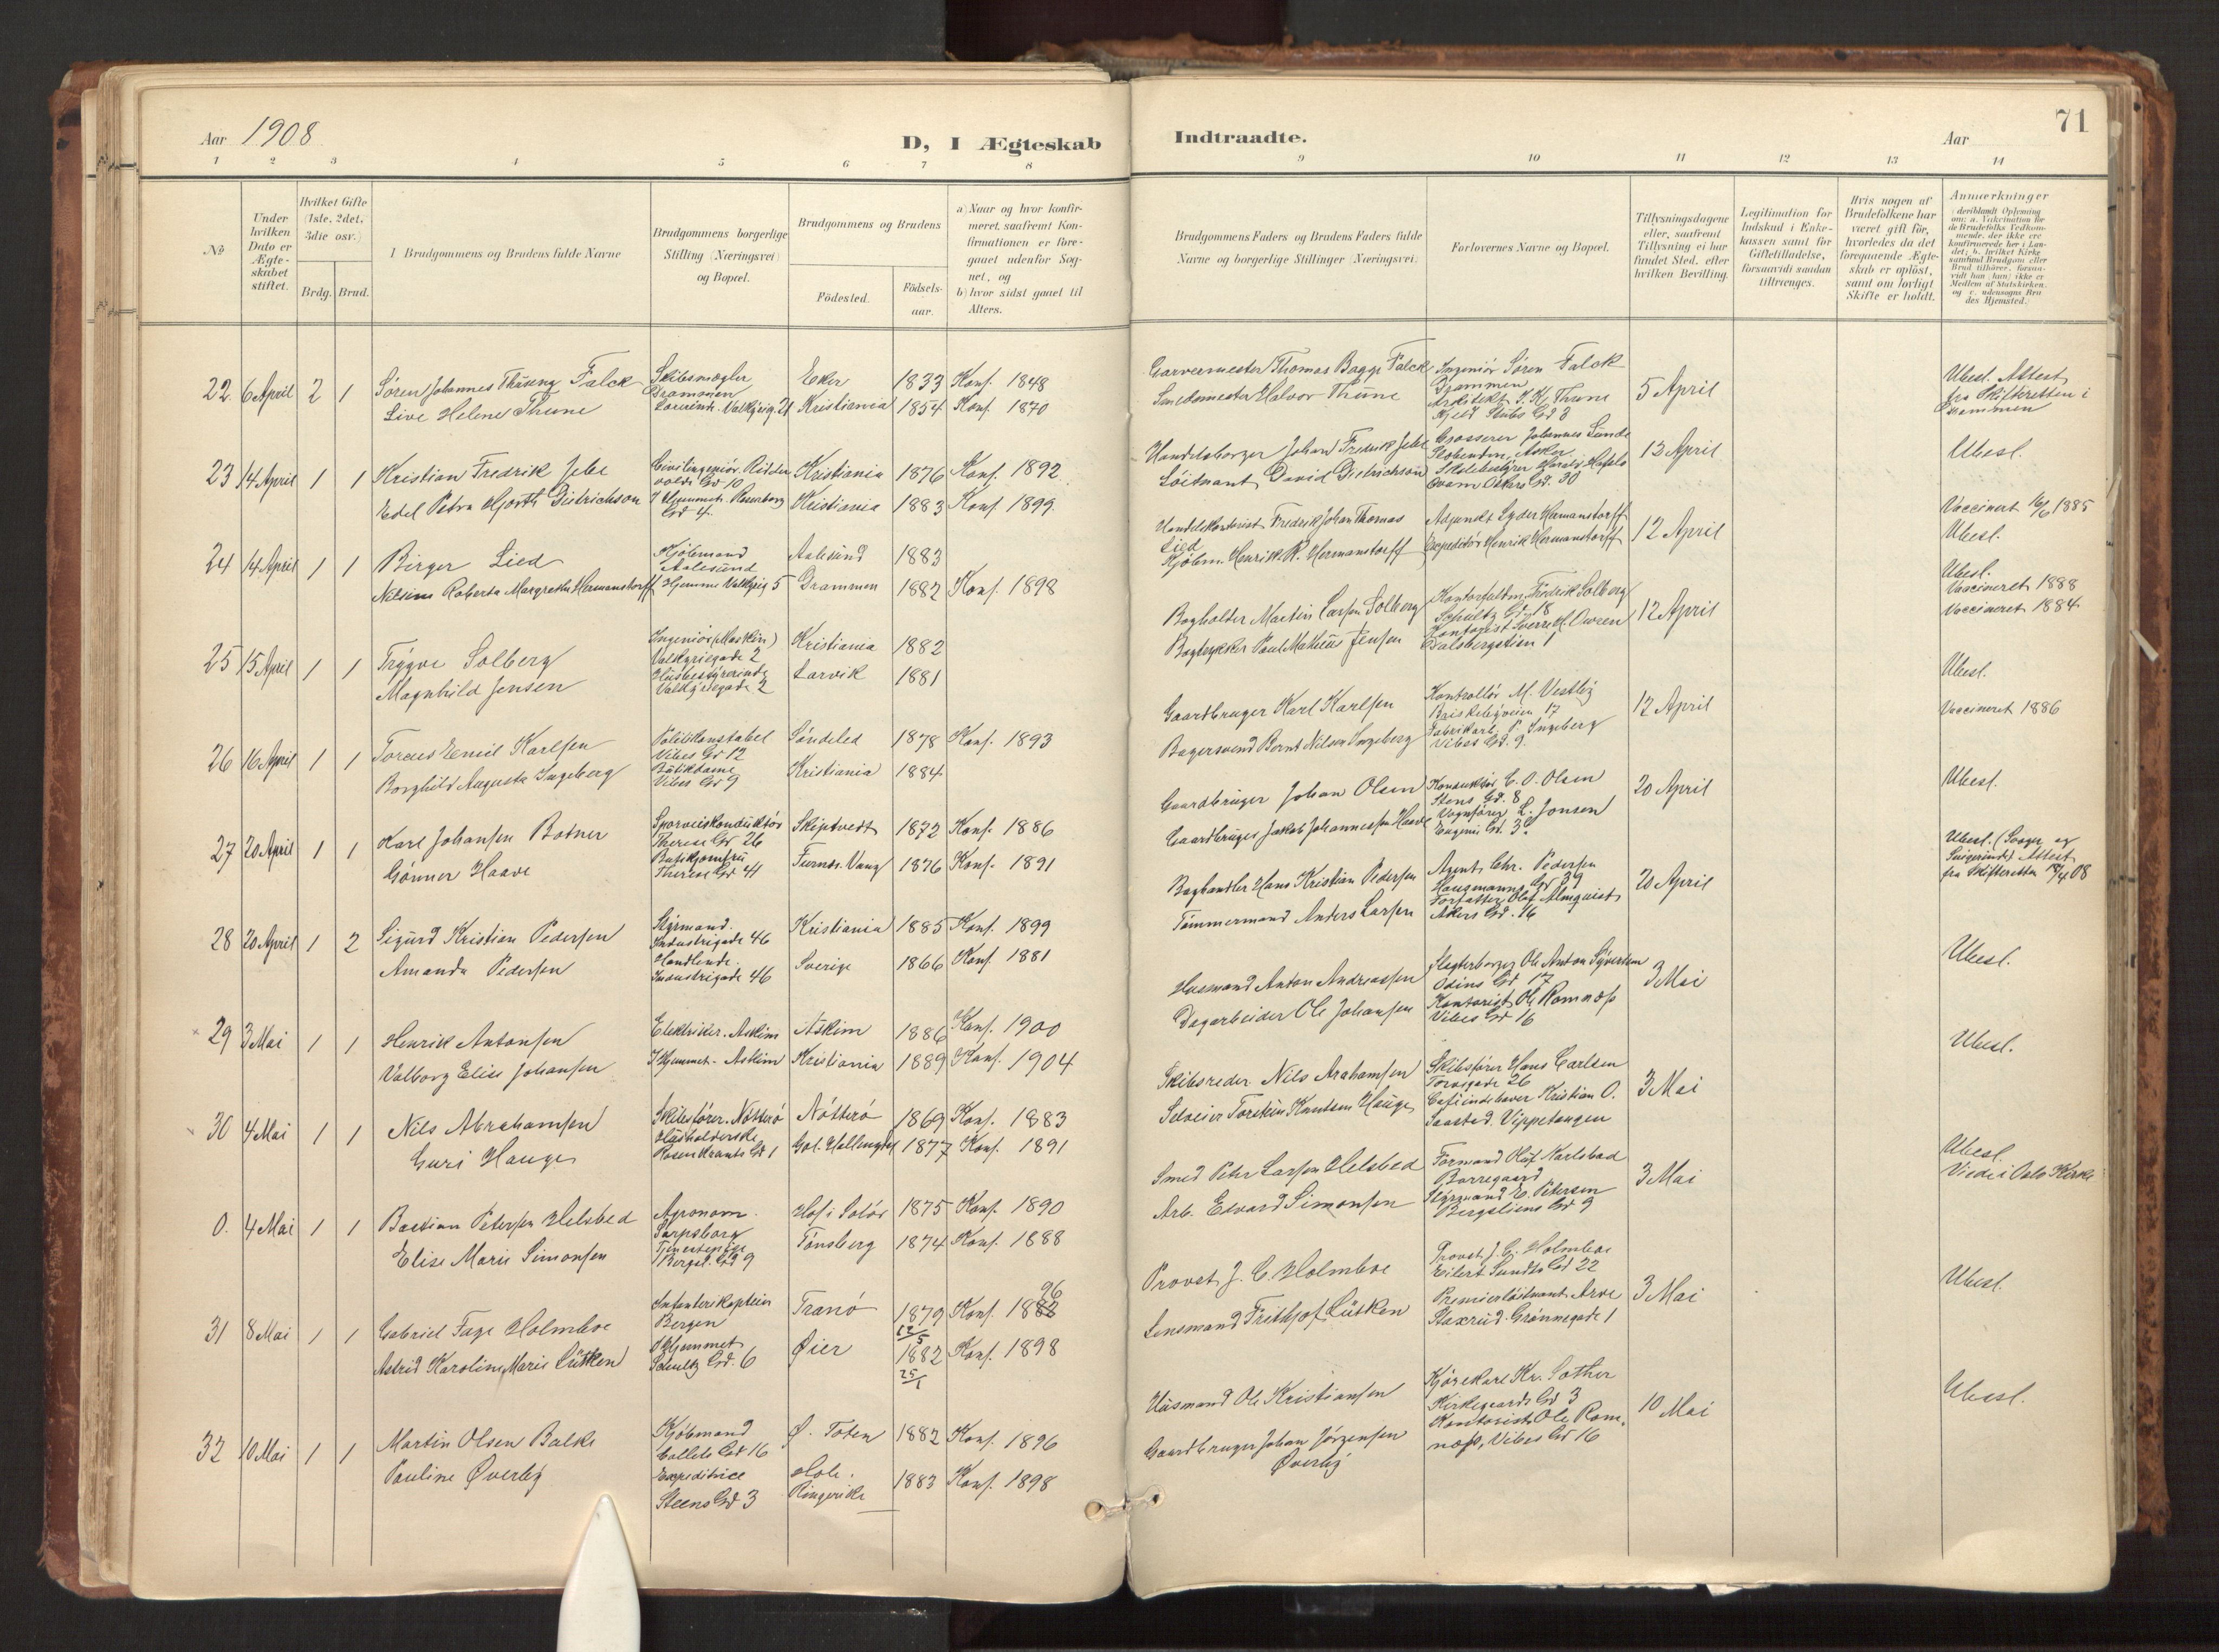 Aar 1908
D, I Ægteskab
Indtraadte.
Aar
71
1 2 3 4 5 6 7 8 9 10 11 12 13 14
No
Under hvilken Dato er Ægteskabet stiftet.
Hvilket Gifte (1ste, 2det, 3die osv.)
Brdg. Brud.
Brudgommens og Brudens fulde Navne
Brudgommens borgerlige Stilling (Næringsvei) og Bopæl.
Brudgommens og Brudens
Födested.
Födselsaar.
a) Naar og hvor konfirmeret, saafremt Konfirmationen er foregaaet udenfor Sognet, og
b) hvor sidst gaaet til Alters.
Brudgommens Faders og Brudens Faders fulde Navne og borgerlige Stillinger (Næringsvei)
Forlovernes Navne og Bopæl.
Tillysningsdagene eller, saafremt Tillysning ei har fundet Sted, efter hvilken Bevilling.
Legitimation for Indskud i Enkekassen samt for Giftetilladelse, forsaavidt saadan tiltrænges.
Hvis nogen af Brudefolkene har været gift för, hvorledes da det foregaaende Ægteskab er oplöst, samt om lovligt Skifte er holdt.
Anmærkninger
22. 6 April 2 1 Søren Johannes Falck Skibsmægler Drammen Eker 1833 Konf. 1848
Live Helene Thune Valkyrieg. 21 Kristiania 1854 Konf. 1870
Garvermester Thomas Bagge Falck Ingeniør Søren Falck Drammen 5 April Ubesl. Attest fra Skifteretten i Drammen
Smedemester Halvor Thune Arkitekt Thune
23 14 April 1 1 Kristian Fredrik Jebe Civilingeniør. Kristiania 1876 Konf. 1892
Edel Petra Hjorth Dietrichson I Hjemmet. Rosenborg Gd 4. Kristiania 1883 Konf 1899.
Handelsborger Johan Fredrik Jebe Grosserer Johannes Sunde 13 April Ubesl.
Løitnant David Dietrichson Oscars Gd. 30
24 14 April 1 1 Birger Lied Kjøbmand Aalesund Aalesund 1883
Nilsine Roberta Margrethe Hermanstorff Hjemme Valkyrieg 5 Drammen 1882 Konf. 1898
Fredrik Johan Thomas Lied Adjunkt Lyder Hermanstorff 12 April Vaccineret 16/6 1885 Ubesl.
Kjøbm. Henrik R. Hermanstorff Expeditør Henrik Hermanstorff
25 15 April 1 1 Trygve Solberg Ingeniør (Maskin) Valkyriegade 2 Kristiania 1882
Magnhild Jensen Husbestyrerinde Valkyriegade 2 Larvik 1881
Bogholder Martin Larsen Solberg Fredrik Solberg Schultz Gd. 18 12 April Ubesl. Vaccineret 1888
Bogtrykker Paul Mathias Jensen Kontorist Sverre Dalsbergstien 1 Vaccineret 1884
26 16 April 1 1 Emil Karlsen Politikonstabel Vibes Gd 12 Søndeled 1878 Konf. 1893
Borghild Augusta Ingeberg Butikdame Vibes Gd 9 Kristiania 1884
Gaardbruger Karl Karlsen Kontrollør M. Vestby 12 April Ubesl.
Bagersvend Bernt Nilsen Ingeberg P. Ingeberg Vibes Gd. 9. Vaccineret 1886
27 20 April 1 1 Karl Johansen Botner Sporveiskonduktør Therese Gd 26 Skiptvedt 1872 Konf. 1886
Gunner Haave Butikjomfru Therese Gd 41 Furnes. Vang 1876 Konf. 1891
Gaardbruger Johan Olsen Konduktør C. O. Olsen Stens Gd. 8 20 April Ubesl.
Gaardbruger Jakob Johannessen Haave Vognfører L. Jonsen
28 20 April 1 2 Sigurd Kristian Pedersen Styrmand. Industrigade 46 Kristiania 1885 Konf. 1899
Amanda Pedersen Handlende. Industrigade 46 Sverige 1866 Konf 1881
Boghandler Hans Kristian Pedersen Agent Chr. Pedersen Hausmanns Gd 39 20 April Ubesl. Attest fra Skifteretten
Tømmermand Anders Larsen Forfatter Olaf Almquist Akers Gd. 16
29 3 Mai 1 1 Henrik Antonsen Elektriker. Askim Askim 1886 Konf. 1900
Valborg Elise Johansen I Hjemmet. Askim Kristiania 1889 Konf. 1904
Husmand Anton Andreassen Ole Anton Syversen Odins Gd. 17 3 Mai Ubesl.
Dagarbeider Ole Johansen Kontorist Ole Romnæss Vibes Gd 16
30 4 Mai 1 1 Nils Abrahamsen Skibsfører. Nøtterø Nøtterø 1869 Konf. 1883
Guri Hauge Husholderske Rosenkrants Gd 1 Gol. Hallingdal 1877 Konf. 1891
Skibsreder Nils Arahamsen Skibsfører Hans Carlsen 3 Mai Ubesl.
Selveier Torstein Knutsen Hauge Caféindehaver Kristian O. Saastad. Vippetangen
0. 4 Mai 1 1 Bastian Petersen Helsbed Agronom. Sarpsborg Hof i Solør 1875 Konf. 1890
Elise Marie Simonsen Tjenestepige Bergsl. Gd 9 Tønsberg 1874 Konf. 1888
Smed Peter Larsen Helsbed Formand Olaf Karlsbad Borregaard 3 Mai Ubesl. Viede i Oslo Kirke
Arb. Edvard Simonsen Styrmand E. Petersen Bergsliens Gd 9
31 8 Mai 1 1 Gabriel Fage Holmboe Infanterikaptein Bergen Tranø 1879 Konf. 1882 96
Astrid Karoline Marie Lütken I Hjemmet Schultz Gd. 6 Øier 1882 25/1 Konf. 1898
Provst J. C. Holmboe Provst J. C. Holmboe Eilert Sundts Gd 22 3 Mai Ubesl.
Lensmand Frithjof Lütken Premierløitnant Arve Staxrud. Grønnegade 1
32 10 Mai 1 1 Martin Olsen Balke Kjøbmand Colletts Gd 16 Ø. Toten 1882 Konf. 1896
Pauline Øverby Expeditrice Steens Gd 3 Hole. Ringerike 1883 Konf. 1898
Husmand Ole Kristiansen Kjørekarl Kr. Sother Kirkegaards Gd 3 10 Mai Ubesl.
Gaardbruger Johan Jørgensen Øverby Kontorist Ole Romnæss, Vibes Gd 16